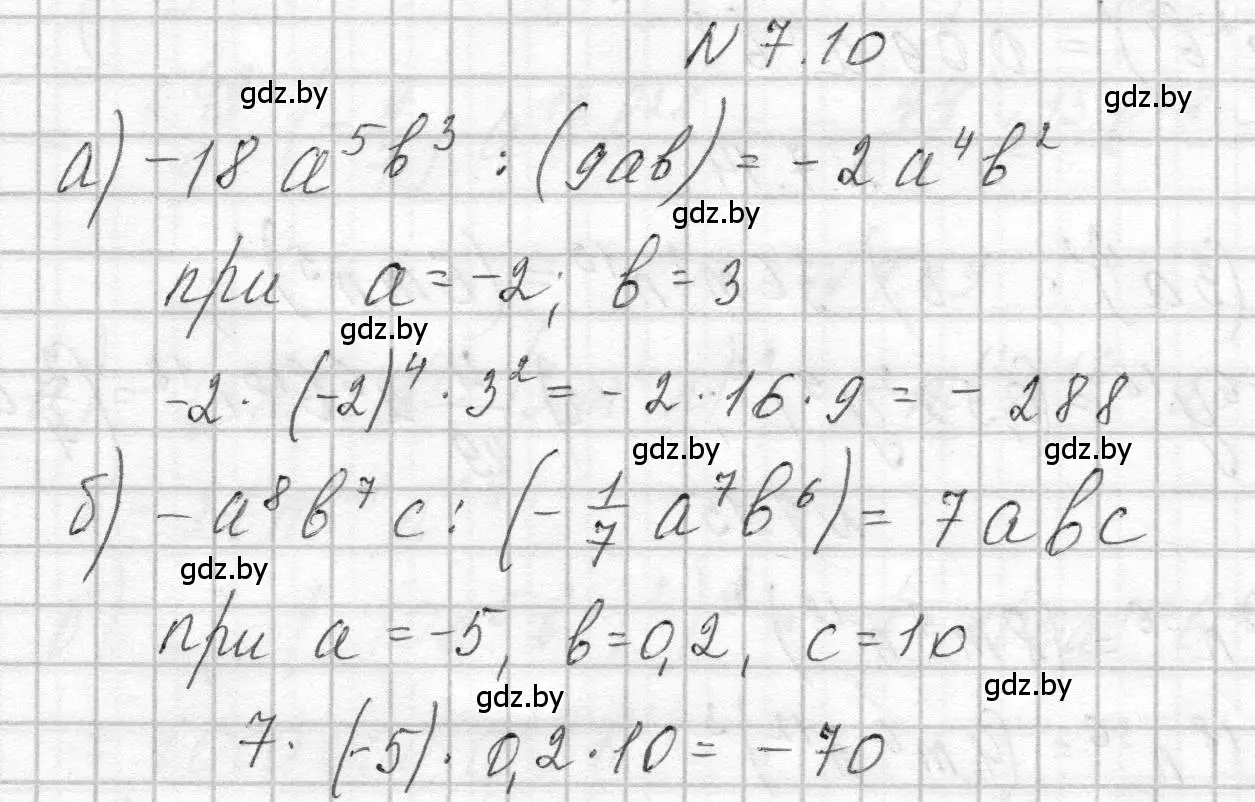 N 7.10
gdz.by gdz.by
а) -18 a⁵b³ : (9ab) = -2a⁴b²
gdz.by
при a = -2; b = 3
gdz.by
-2 · (-2)⁴ · 3² = -2 · 16 · 9 = -288
gdz.by gdz.by
б) -a⁸b⁷c : (-1/7 a⁷b⁶) = 7abc
gdz.by
при a = -5, b = 0,2, c = 10
gdz.by gdz.by
7 · (-5) · 0,2 · 10 = -70